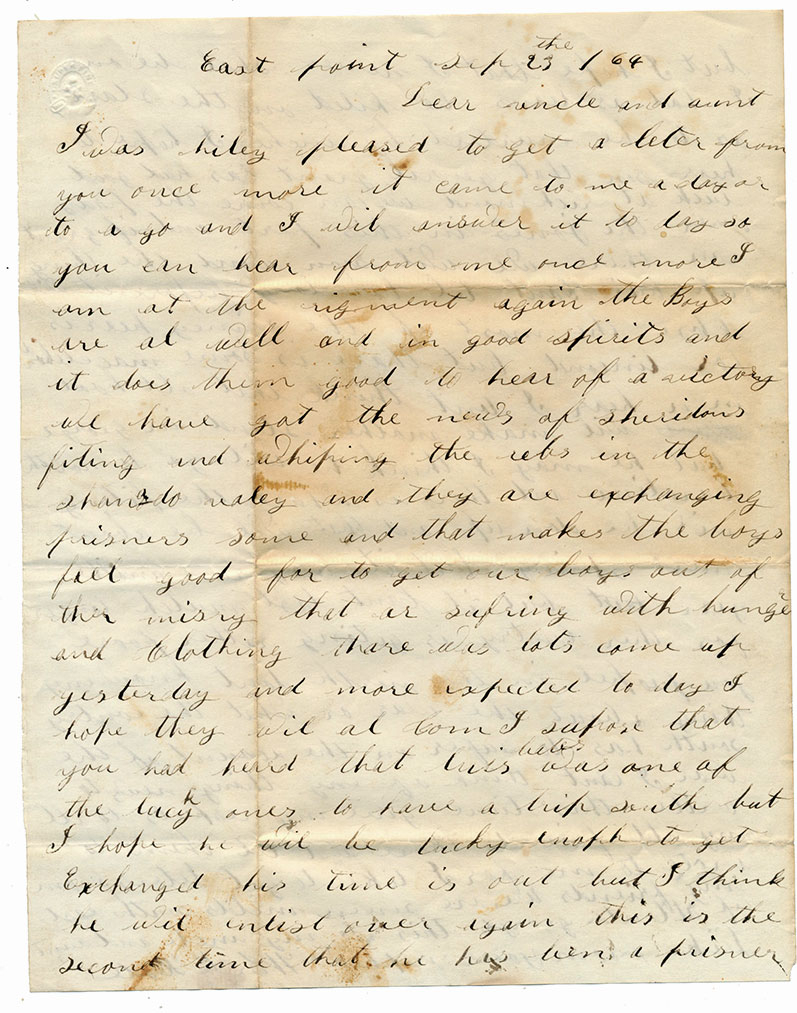 East point Sep 23 the / 64
Dear uncle and aunt
I was hiley pleased to get a leter from
you once more it came to me a day or
to a go and I wil answer it to day so
you can hear from me once more I
am at the rigment again the Boys
are al well and in good spirits and
it does them good to hear of a victory
we have got the news of sheridons
fiting and whiping the rebs in the
shanado valey and they are exchanging
prisners some and that makes the boys
feel good for to get our boys out of
ther misry that ar sufring with hunge
and Clothing thare was lots come up
yesterday and more expected to day I
hope they wil al com I supose that
you had herd that was one of
the lucky ones to have a trip south but
I hope he wil be lucky enoph to get
Exchanged his time is out but I think
he wil enlist over again this is the
second time that he has ben a prisner